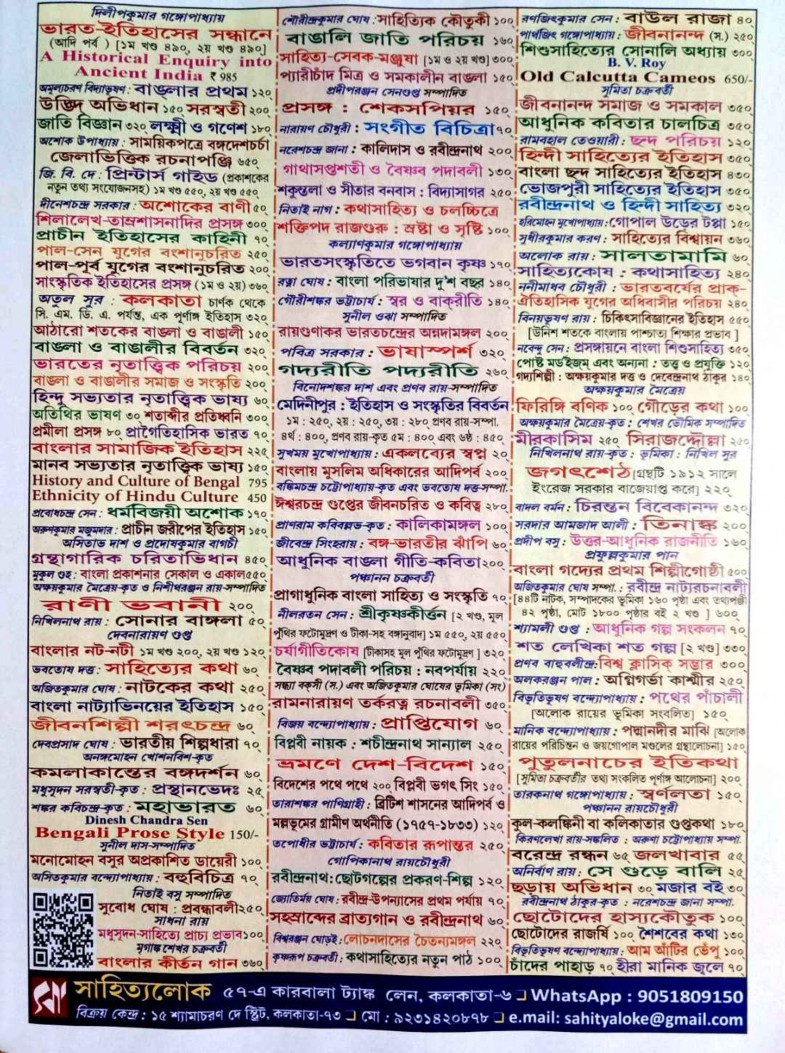 দিলীপকুমার গঙ্গোপাধ্যায়
ভারত-ইতিহাসের সন্ধানে
(আদি পর্ব) [১ম খণ্ড ৪৯০, ২য় খণ্ড ৪৯০]
A Historical Enquiry into
Ancient India ₹ 985
অমূল্যচরণ বিদ্যাভূষণ : বাঙলার প্রথম ১২০
উদ্ভিদ অভিধান ১৫০ সরস্বতী ২০০
জাতি বিজ্ঞান ৩২০ লক্ষ্মী ও গণেশ ১৮০
অশোক উপাধ্যায় : সাময়িকপত্রে বঙ্গদেশচর্চা
জেলাভিত্তিক রচনাপঞ্জি ৬৫০
জি. বি. দে : প্রিন্টার্স গাইড (প্রকাশকের
নতুন তথ্য সংযোজনসহ) ১ম খণ্ড ৫৫০, ২য় খণ্ড ৫৫০
দীনেশচন্দ্র সরকার : অশোকের বাণী ৫০
শিলালেখ-তাম্রশাসনাদির প্রসঙ্গ ৩০০
প্রাচীন ইতিহাসের কাহিনী ৭০
পাল-সেন যুগের বংশানুচরিত ২৫০
পাল-পূর্ব যুগের বংশানুচরিত ২০০
সাংস্কৃতিক ইতিহাসের প্রসঙ্গ (১ম ও ২য়) ৩৬০
অতুল সুর : কলকাতা চার্ণক থেকে
সি. এম. ডি. এ. পর্যন্ত, এক পূর্ণাঙ্গ ইতিহাস ৩২০
আঠারো শতকের বাঙলা ও বাঙালী ১৫০
বাঙলা ও বাঙালীর বিবর্তন ৩২০
ভারতের নৃতাত্ত্বিক পরিচয় ২০০
বাঙলা ও বাঙালীর সমাজ ও সংস্কৃতি ২০০
হিন্দু সভ্যতার নৃতাত্ত্বিক ভাষ্য ৬০
অতিথির ভাষণ ৩০ শতাব্দীর প্রতিধ্বনি ৩০০
প্রমীলা প্রসঙ্গ ৮০ প্রাগৈতিহাসিক ভারত ৭০
বাংলার সামাজিক ইতিহাস ২২৫
মানব সভ্যতার নৃতাত্ত্বিক ভাষ্য ১৫০
History and Culture of Bengal 795
Ethnicity of Hindu Culture 450
প্রবোধচন্দ্র সেন : ধর্মবিজয়ী অশোক ১৭০
অরুণকুমার মজুমদার : প্রাচীন জরীপের ইতিহাস ১৫০
অসিতাভ দাশ ও প্রদোষকুমার বাগচী
গ্রন্থাগারিক চরিতাভিধান ৪৫০
মুকুল গুহ : বাংলা প্রকাশনার সেকাল ও একাল ৫৫০
অক্ষয়কুমার মৈত্রেয়-কৃত ও নিশীথরঞ্জন রায়-সম্পাদিত
রাণী ভবানী ২০০
নিখিলনাথ রায় : সোনার বাঙ্গলা ৫০
দেবনারায়ণ গুপ্ত
বাংলার নট-নটী ১ম খণ্ড ২০০, ২য় খণ্ড ১২০
ভবতোষ দত্ত : সাহিত্যের কথা ৬০
অজিতকুমার ঘোষ : নাটকের কথা ২৫০
বাংলা নাট্যাভিনয়ের ইতিহাস ১৫০
জীবনশিল্পী শরৎচন্দ্র ৬০
দেবপ্রসাদ ঘোষ : ভারতীয় শিল্পধারা ৭০
অনঙ্গমোহন খোশনবিশ-কৃত
কমলাকান্তের বঙ্গদর্শন ৬০
মধুসূদন সরস্বতী-কৃত : প্রস্থানভেদঃ ২৫
শঙ্কর কবিচন্দ্র-কৃত : মহাভারত ৬০
Dinesh Chandra Sen
Bengali Prose Style 150/-
সুনীল দাস-সম্পাদিত
মনোমোহন বসুর অপ্রকাশিত ডায়েরী ১০০
অসিতকুমার বন্দ্যোপাধ্যায় : বহুবিচিত্র ৭০
নিতাই বসু সম্পাদিত
সুবোধ ঘোষ : প্রবন্ধাবলী ২৫০
সাধনা রায়
মধুসূদন-সাহিত্যে প্রাচ্য প্রভাব ১০০
মৃগাঙ্ক শেখর চক্রবর্তী
বাংলার কীর্তন গান ৩৬০
শৌরীন্দ্রকুমার ঘোষ : সাহিত্যিক কৌতুকী ১০০
বাঙালি জাতি পরিচয় ১৬০
সাহিত্য-সেবক-মঞ্জুষা [১ম ও ২য় খণ্ড] ৩০০
প্যারীচাঁদ মিত্র ও সমকালীন বাঙলা ১৫০
প্রদীপরঞ্জন সেনগুপ্ত সম্পাদিত
প্রসঙ্গ : শেকসপিয়র ১৫০
নারায়ণ চৌধুরী : সংগীত বিচিত্রা ৭০
নরেশচন্দ্র জানা : কালিদাস ও রবীন্দ্রনাথ ২০০
গাথাসপ্তশতী ও বৈষ্ণব পদাবলী ১৩০
শকুন্তলা ও সীতার বনবাস : বিদ্যাসাগর ২৫০
নিতাই নাগ : কথাসাহিত্য ও চলচ্চিত্রে
শক্তিপদ রাজগুরু : স্রষ্টা ও সৃষ্টি ১০০
কল্যাণকুমার গঙ্গোপাধ্যায়
ভারতসংস্কৃতিতে ভগবান কৃষ্ণ ১৭০
রত্না ঘোষ : বাংলা পরিভাষার দু'শ বছর ১৪০
গৌরীশঙ্কর ভট্টাচার্য : স্বর ও বাক্‌রীতি ১৪০
সুনীল ওঝা সম্পাদিত
রায়গুণাকর ভারতচন্দ্রের অন্নদামঙ্গল ২০০
পবিত্র সরকার : ভাষাস্পর্শ ৩২০
গদ্যরীতি পদ্যরীতি ২৬০
বিনোদশঙ্কর দাশ এবং প্রণব রায়-সম্পাদিত
মেদিনীপুর : ইতিহাস ও সংস্কৃতির বিবর্তন
১ম : ২৫০, ২য় : ২৫০, ৩য় : ২৮০ প্রণব রায়-সম্পা.
৪র্থ : ৪০০, প্রণব রায়-কৃত ৫ম : ৪০০ এবং ৬ষ্ঠ : ৪৫০
সুখময় মুখোপাধ্যায় : একলব্যের স্বপ্ন ২০
বাংলায় মুসলিম অধিকারের আদিপর্ব ২০০
বঙ্কিমচন্দ্র চট্টোপাধ্যায়-কৃত এবং ভবতোষ দত্ত-সম্পা.
ঈশ্বরচন্দ্র গুপ্তের জীবনচরিত ও কবিত্ব ২৮০
প্রাণরাম কবিবল্লভ-কৃত : কালিকামঙ্গল ১০০
জীবেন্দ্র সিংহরায় : বঙ্গ-ভারতীর ঝাঁপি ৬০
আধুনিক বাঙলা গীতি-কবিতা ২০০
পঞ্চানন চক্রবর্তী
প্রাগাধুনিক বাংলা সাহিত্য ও সংস্কৃতি ৭০
নীলরতন সেন : শ্রীকৃষ্ণকীর্তন [২ খণ্ড, মূল
পুঁথির ফটোমুদ্রণ ও টীকা-সহ বঙ্গানুবাদ] ১ম ৫৫০, ২য় ৫৫০
চর্যাগীতিকোষ [টীকাসহ মূল পুঁথির ফটোমুদ্রণ] ৩২০
বৈষ্ণব পদাবলী পরিচয় : নবপর্যায় ২২০
সন্ধ্যা বক্‌সী (স.) এবং অজিতকুমার ঘোষের ভূমিকা (সং)
রামনারায়ণ তর্করত্ন রচনাবলী ৩৫০
বিজয় বন্দ্যোপাধ্যায় : প্রাপ্তিযোগ ৬০
বিপ্লবী নায়ক : শচীন্দ্রনাথ সান্যাল ২৫০
ভ্রমণে দেশ-বিদেশ ১৫০
বিদেশের পথে পথে ২০০ বিপ্লবী ভগৎ সিং ১৫০
তারাশঙ্কর পাণিগ্রাহী : ব্রিটিশ শাসনের আদিপর্ব ও
মল্লভূমের গ্রামীণ অর্থনীতি (১৭৫৭-১৮৩৩) ১২০
তপোধীর ভট্টাচার্য : কবিতার রূপান্তর ২৫০
গোপিকানাথ রায়চৌধুরী
রবীন্দ্রনাথ : ছোটগল্পের প্রকরণ-শিল্প ১২০
জ্যোতির্ময় ঘোষ : রবীন্দ্র-উপন্যাসের প্রথম পর্যায় ৭০
সহস্রাব্দের ব্রাত্যগান ও রবীন্দ্রনাথ ৬০
বিশ্বরঞ্জন ঘোড়ই : লোচনদাসের চৈতন্যমঙ্গল ২২০
কৃষ্ণরূপ চক্রবর্তী : কথাসাহিত্যের নতুন পাঠ ১০০
রণজিৎকুমার সেন : বাউল রাজা ৪০
পার্থজিৎ গঙ্গোপাধ্যায় : জীবনানন্দ (স.) ২৫০
শিশুসাহিত্যের সোনালি অধ্যায় ৩০০
B. V. Roy
Old Calcutta Cameos 650/-
সুমিতা চক্রবর্তী
জীবনানন্দ সমাজ ও সমকাল ৩৫০
আধুনিক কবিতার চালচিত্র ৩৫০
রামবহাল তেওয়ারী : ছন্দ পরিচয় ১২০
হিন্দী সাহিত্যের ইতিহাস ৩৫০
বাংলা ছন্দ সাহিত্যের ইতিহাস ৪৩০
ভোজপুরী সাহিত্যের ইতিহাস ৩৫০
রবীন্দ্রনাথ ও হিন্দী সাহিত্য ৩২০
হরিমোহন মুখোপাধ্যায় : গোপাল উড়ের টপ্পা ১৫০
সুধীরকুমার করণ : সাহিত্যের বিশ্বায়ন ৩৬০
অলোক রায় : সালতামামি ৬০
সাহিত্যকোষ : কথাসাহিত্য ২৪০
ননীমাধব চৌধুরী : ভারতবর্ষের প্রাক্‌-
ঐতিহাসিক যুগের অধিবাসীর পরিচয় ২৪০
বিনয়ভূষণ রায় : চিকিৎসাবিজ্ঞানের ইতিহাস ৫৫০
[উনিশ শতকে বাংলায় পাশ্চাত্য শিক্ষার প্রভাব]
নবেন্দু সেন : প্রসঙ্গায়নে বাংলা শিশুসাহিত্য ৩৫০
পোষ্ট মডইজম্ এবং অন্যান্য : তত্ত্ব ও প্রযুক্তি ১২০
গদ্যশিল্পী : অক্ষয়কুমার দত্ত ও দেবেন্দ্রনাথ ঠাকুর ১৪০
অক্ষয়কুমার মৈত্রেয়
ফিরিঙ্গি বণিক ১০০ গৌড়ের কথা ১০০
অক্ষয়কুমার মৈত্রেয়-কৃত : শেখর ভৌমিক সম্পাদিত
মীরকাসিম ২৫০ সিরাজদ্দৌল্লা ২৫০
নিখিলনাথ রায়-কৃত : ভূমিকা : নিখিল সুর
জগৎশেঠ [গ্রন্থটি ১৯১২ সালে
ইংরেজ সরকার বাজেয়াপ্ত করে] ২২০
বাদল বর্মন : চিরন্তন বিবেকানন্দ ৩২০
সরদার আমজাদ আলী : তিনাঙ্ক ২০০
প্রদীপ বসু : উত্তর-আধুনিক রাজনীতি ১৬০
প্রফুল্লকুমার পান
বাংলা গদ্যের প্রথম শিল্পীগোষ্ঠী ৫০০
অজিতকুমার ঘোষ সম্পা. : রবীন্দ্র নাট্যরচনাবলী
[৪৪টি নাটক, সম্পাদকের ভূমিকা ১৬০ পৃষ্ঠা এবং তথ্যপঞ্জী
৪২ পৃষ্ঠা, মোট ১৮০০ পৃষ্ঠার বই ২ খণ্ড] ৬০০
শ্যামলী গুপ্ত : আধুনিক গল্প সংকলন ৭০
শত লেখিকা শত গল্প [২ খণ্ড] ৩০০
প্রণব বাহুবলীন্দ্র : বিশ্ব ক্লাসিক্‌ সম্ভার ৩০০
অলকরঞ্জন পাল : অগ্নিগর্ভা কাশ্মীর ২৫০
বিভূতিভূষণ বন্দ্যোপাধ্যায় : পথের পাঁচালী
[অলোক রায়ের ভূমিকা সংবলিত] ১৫০
মানিক বন্দ্যোপাধ্যায় : পদ্মানদীর মাঝি [অলোক
রায়ের পরিচিন্তন ও জয়গোপাল মণ্ডলের গ্রন্থালোচনা] ১৫০
পুতুলনাচের ইতিকথা
[সুমিতা চক্রবর্তীর তথ্য সংকলিত পূর্ণাঙ্গ আলোচনা] ২০০
তারকনাথ গঙ্গোপাধ্যায় : স্বর্ণলতা ১৫০
পঞ্চানন রায়চৌধুরী
কুল-কলঙ্কিনী বা কলিকাতার গুপ্তকথা ১৮০
কিরণলেখা রায়-সঙ্কলিত : অরুণা চট্টোপাধ্যায় সম্পা.
বরেন্দ্র রন্ধন ৬৫ জলখাবার ৫৫
অনির্বাণ রায় : সে গুড়ে বালি ২৫
ছড়ায় অভিধান ৩০ মজার বই ৩০
রবীন্দ্রনাথ ঠাকুর-কৃত : নরেশচন্দ্র জানা সম্পা.
ছোটোদের হাস্যকৌতুক ১০০
ছোটোদের রাজর্ষি ১০০ শৈশবের কথা ১৩০
বিভূতিভূষণ বন্দ্যোপাধ্যায় : আম আঁটির ভেঁপু ১০০
চাঁদের পাহাড় ৭০ হীরা মানিক জ্বলে ৭০
সাহিত্যলোক ৫৭-এ কারবালা ট্যাঙ্ক লেন, কলকাতা-৬ ❏ WhatsApp : 9051809150
বিক্রয় কেন্দ্র : ১৫ শ্যামাচরণ দে স্ট্রিট, কলকাতা-৭৩ ❏ মো : ৯২৩১৪২০৮৭৮ ❏ e.mail: sahityaloke@gmail.com